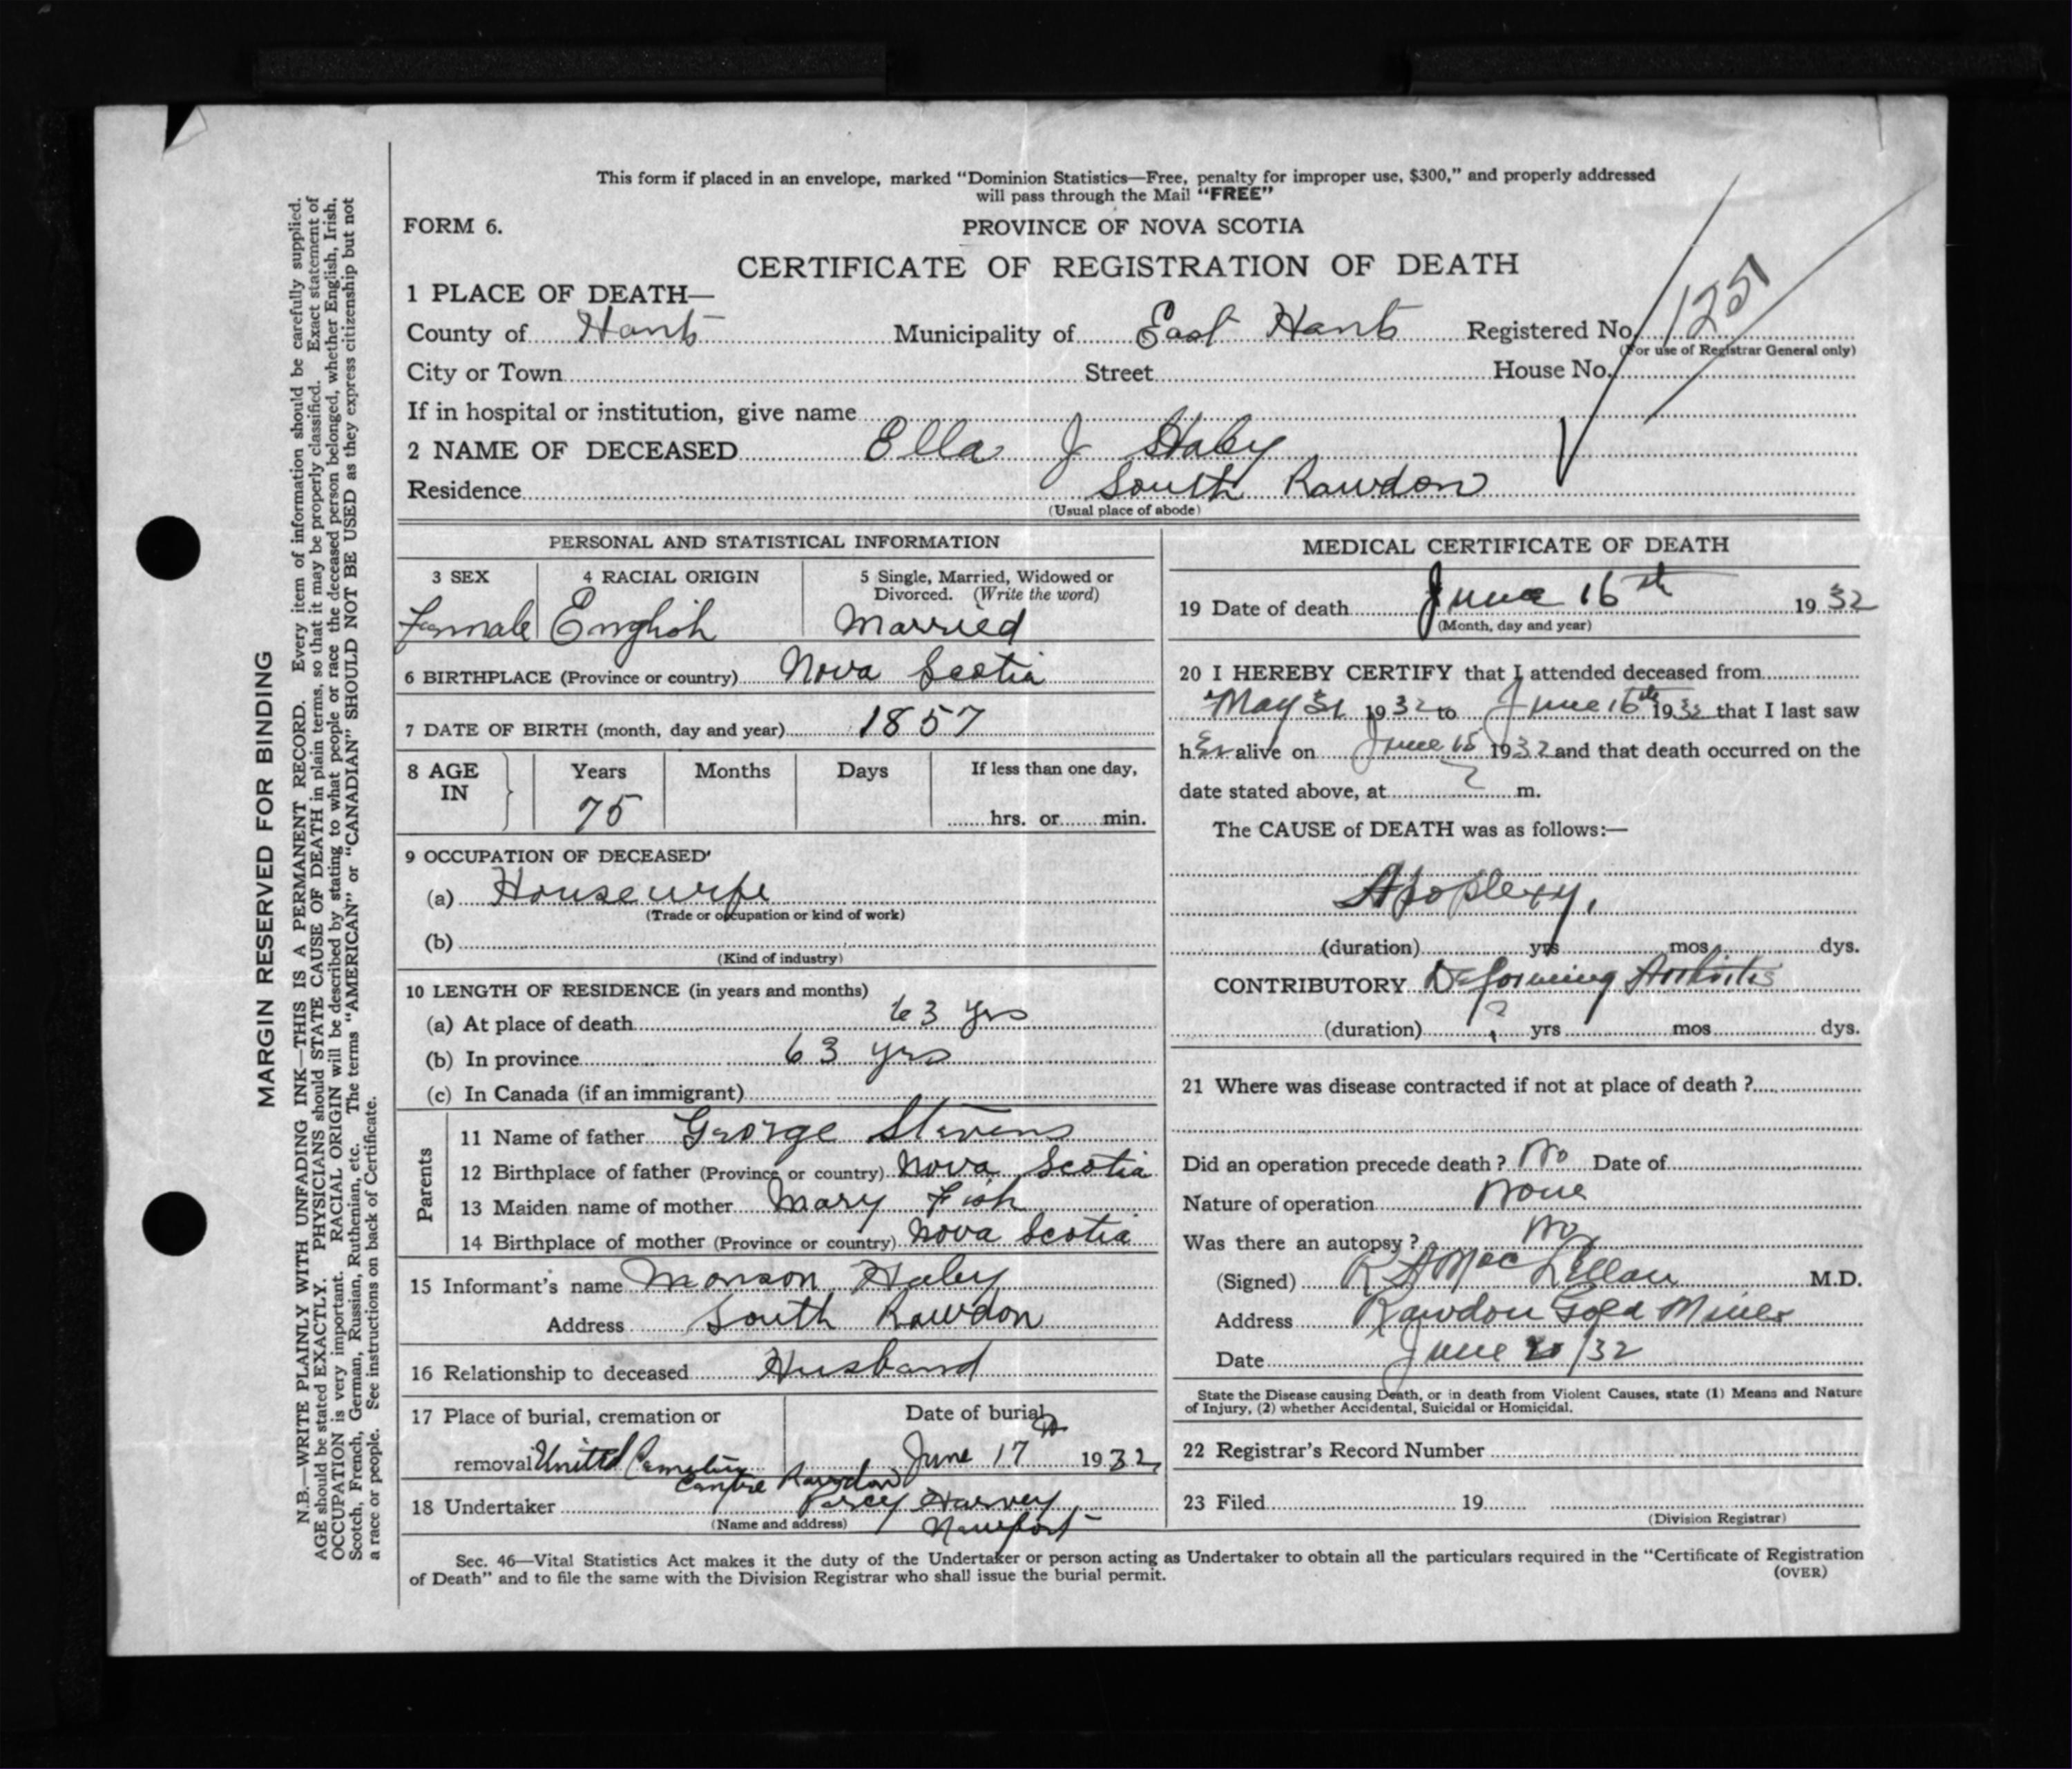 This form if placed in an envelope, marked “Dominion Statistics—Free, penalty for improper use, $300,” and properly addressed
will pass through the Mail “FREE”
FORM 6.
PROVINCE OF NOVA SCOTIA
CERTIFICATE OF REGISTRATION OF DEATH
1 PLACE OF DEATH—
County of Hants Municipality of East Hants Registered No. 125
(For use of Registrar General only)
City or Town Street House No.
If in hospital or institution, give name
2 NAME OF DECEASED Ella J Haley
Residence South Rawdon
(Usual place of abode)
PERSONAL AND STATISTICAL INFORMATION
3 SEX 4 RACIAL ORIGIN 5 Single, Married, Widowed or
Divorced. (Write the word)
Female English Married
6 BIRTHPLACE (Province or country) Nova Scotia
7 DATE OF BIRTH (month, day and year) 1857
8 AGE IN Years Months Days If less than one day,
75 hrs. or min.
9 OCCUPATION OF DECEASED
(a) Housewife
(Trade or occupation or kind of work)
(b)
(Kind of industry)
10 LENGTH OF RESIDENCE (in years and months)
(a) At place of death 63 yrs
(b) In province 63 yrs
(c) In Canada (if an immigrant)
Parents
11 Name of father George Stevens
12 Birthplace of father (Province or country) Nova Scotia
13 Maiden name of mother Mary Fish
14 Birthplace of mother (Province or country) Nova Scotia
15 Informant's name Monson Haley
Address South Rawdon
16 Relationship to deceased Husband
17 Place of burial, cremation or Date of burial
removal United Cemetery June 17th 1932
Centre Rawdon
18 Undertaker Percy Harvey
(Name and address) Newport
MEDICAL CERTIFICATE OF DEATH
19 Date of death June 16th 1932
(Month, day and year)
20 I HEREBY CERTIFY that I attended deceased from
May 31 1932 to June 16th 1932 that I last saw
her alive on June 15 1932 and that death occurred on the
date stated above, at ? m.
The CAUSE of DEATH was as follows:—
Apoplexy.
(duration) yrs mos dys.
CONTRIBUTORY Deforming Arthritis
(duration) ? yrs mos dys.
21 Where was disease contracted if not at place of death ?
Did an operation precede death ? No Date of
Nature of operation None
Was there an autopsy ? No
(Signed) R A MacLellan M.D.
Address Rawdon Gold Mines
Date June 20/32
State the Disease causing Death, or in death from Violent Causes, state (1) Means and Nature
of Injury, (2) whether Accidental, Suicidal or Homicidal.
22 Registrar's Record Number
23 Filed 19
(Division Registrar)
Sec. 46—Vital Statistics Act makes it the duty of the Undertaker or person acting as Undertaker to obtain all the particulars required in the “Certificate of Registration
of Death” and to file the same with the Division Registrar who shall issue the burial permit.
(OVER)
MARGIN RESERVED FOR BINDING
N.B.—WRITE PLAINLY WITH UNFADING INK—THIS IS A PERMANENT RECORD. Every item of information should be carefully supplied.
AGE should be stated EXACTLY. PHYSICIANS should STATE CAUSE OF DEATH in plain terms, so that it may be properly classified. Exact statement of
OCCUPATION is very important. RACIAL ORIGIN will be described by stating to what people or race the deceased person belonged, whether English, Irish,
Scotch, French, German, Russian, Ruthenian, etc. The terms “AMERICAN” or “CANADIAN” SHOULD NOT BE USED as they express citizenship but not
a race or people. See instructions on back of Certificate.